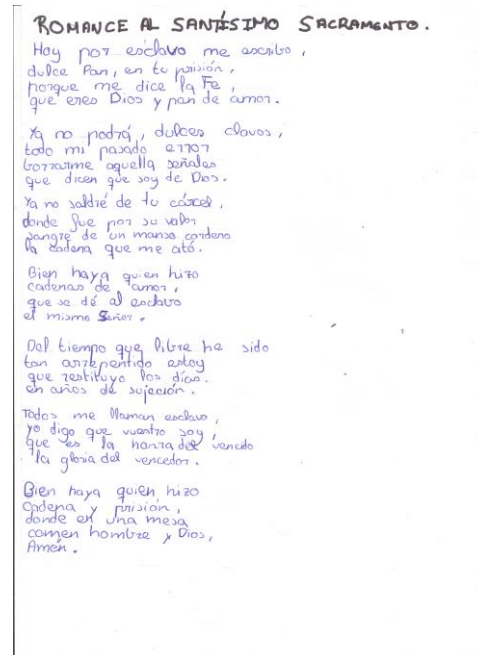 ROMANCE AL SANTÍSIMO SACRAMENTO.
Hoy por esclavo me escribo,
dulce Pan, en tu prisión,
porque me dice la Fe,
que eres Dios y pan de amor.
Ya no podrá, dulces clavos,
todo mi pasado error
borrarme aquella señales
que dicen que soy de Dios.
Ya no saldré de tu cárcel,
donde fue por su valor
sangre de un manso cordero
la cadena que me ató.
Bien haya quien hizo
cadenas de amor,
que se dé al esclavo
el mismo Señor.
Del tiempo que libre he sido
tan arrepentido estoy
que restituyo los días.
en años de sujeción.
Todos me llaman esclavo,
yo digo que vuestro soy,
que es la honra del vencido
la gloria del vencedor.
Bien haya quien hizo
Cadena y prisión,
donde en una mesa
comen hombre y Dios,
Amén.